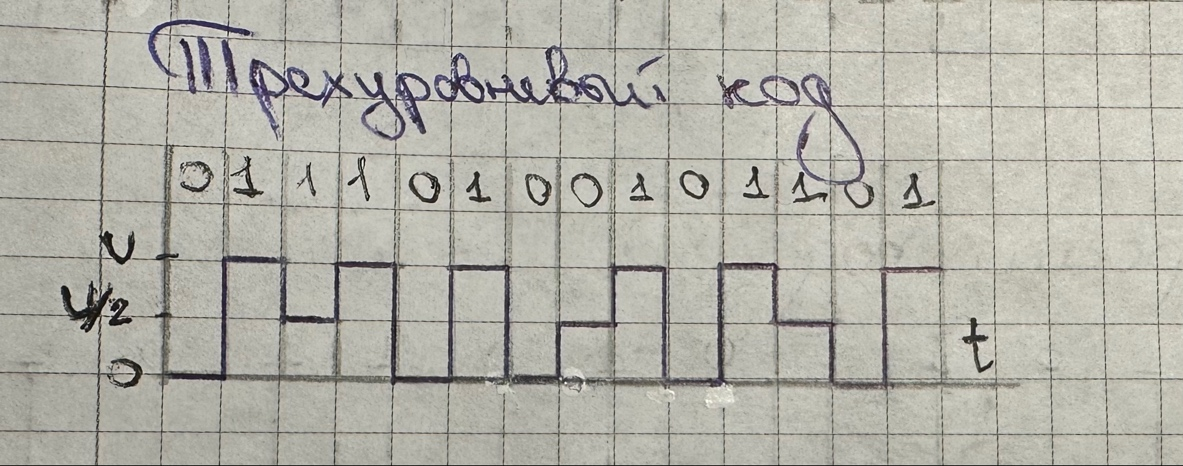 Трехуровневый код
0 1 1 1 0 1 0 0 1 0 1 1 0 1
U
U/2
0
t